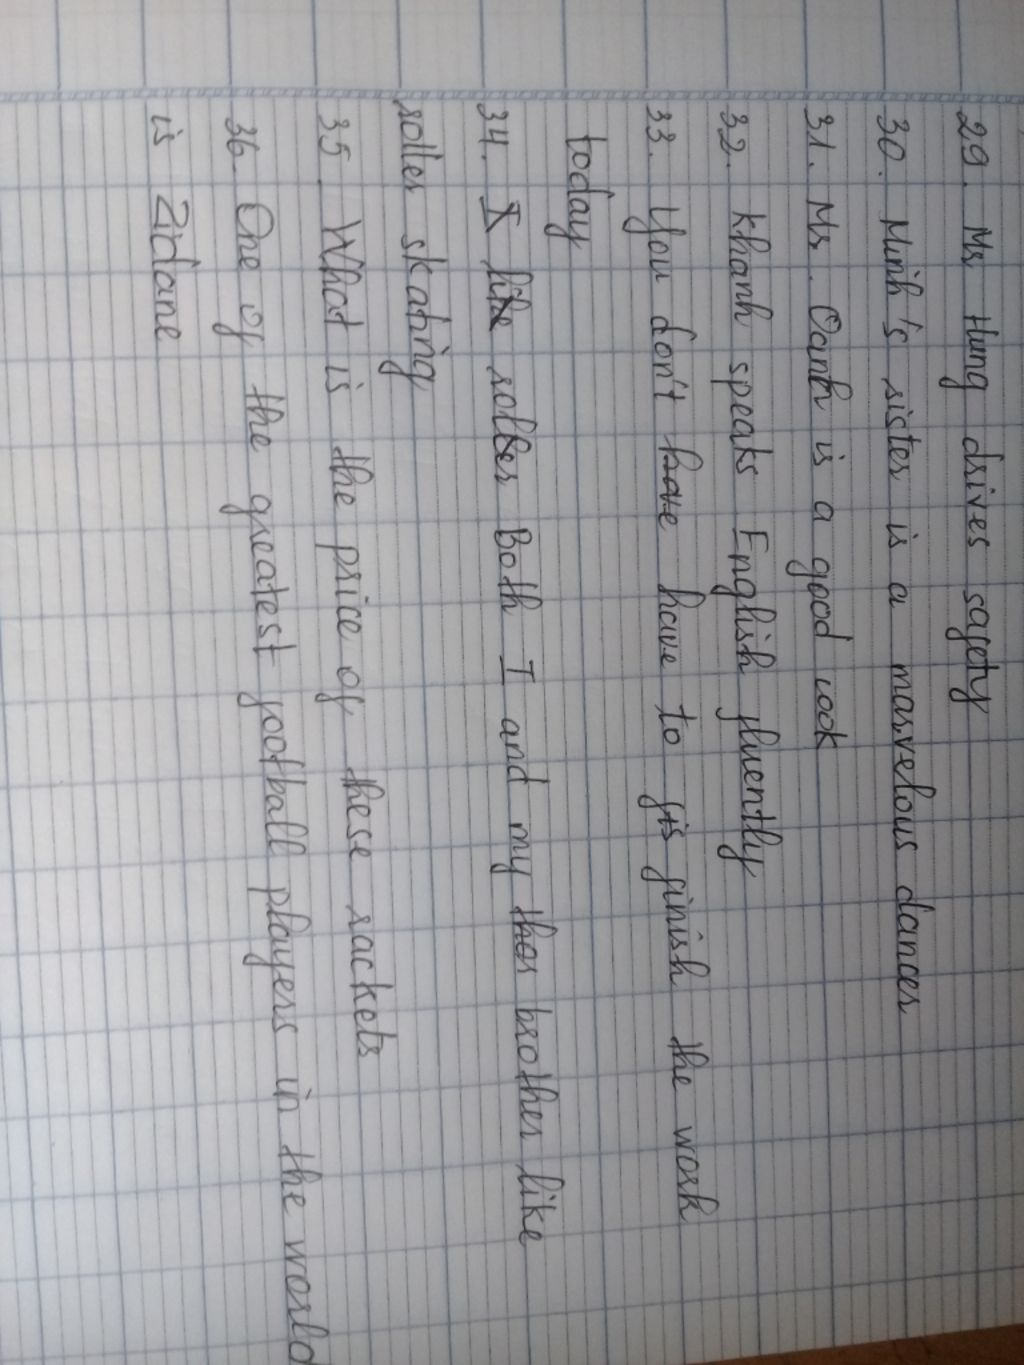 29. Mr Hung drives safety
30. Minh's sister is a marvelous dancer
31. Mr. Oanh is a good cook
32. Khanh speaks English fluently
33. You don't have have to fis finish the work
today
34. I like roller Both I and my ther brother like
roller skating
35. What is the price of these rackets
36. One of the greatest football players in the world
is Zidane